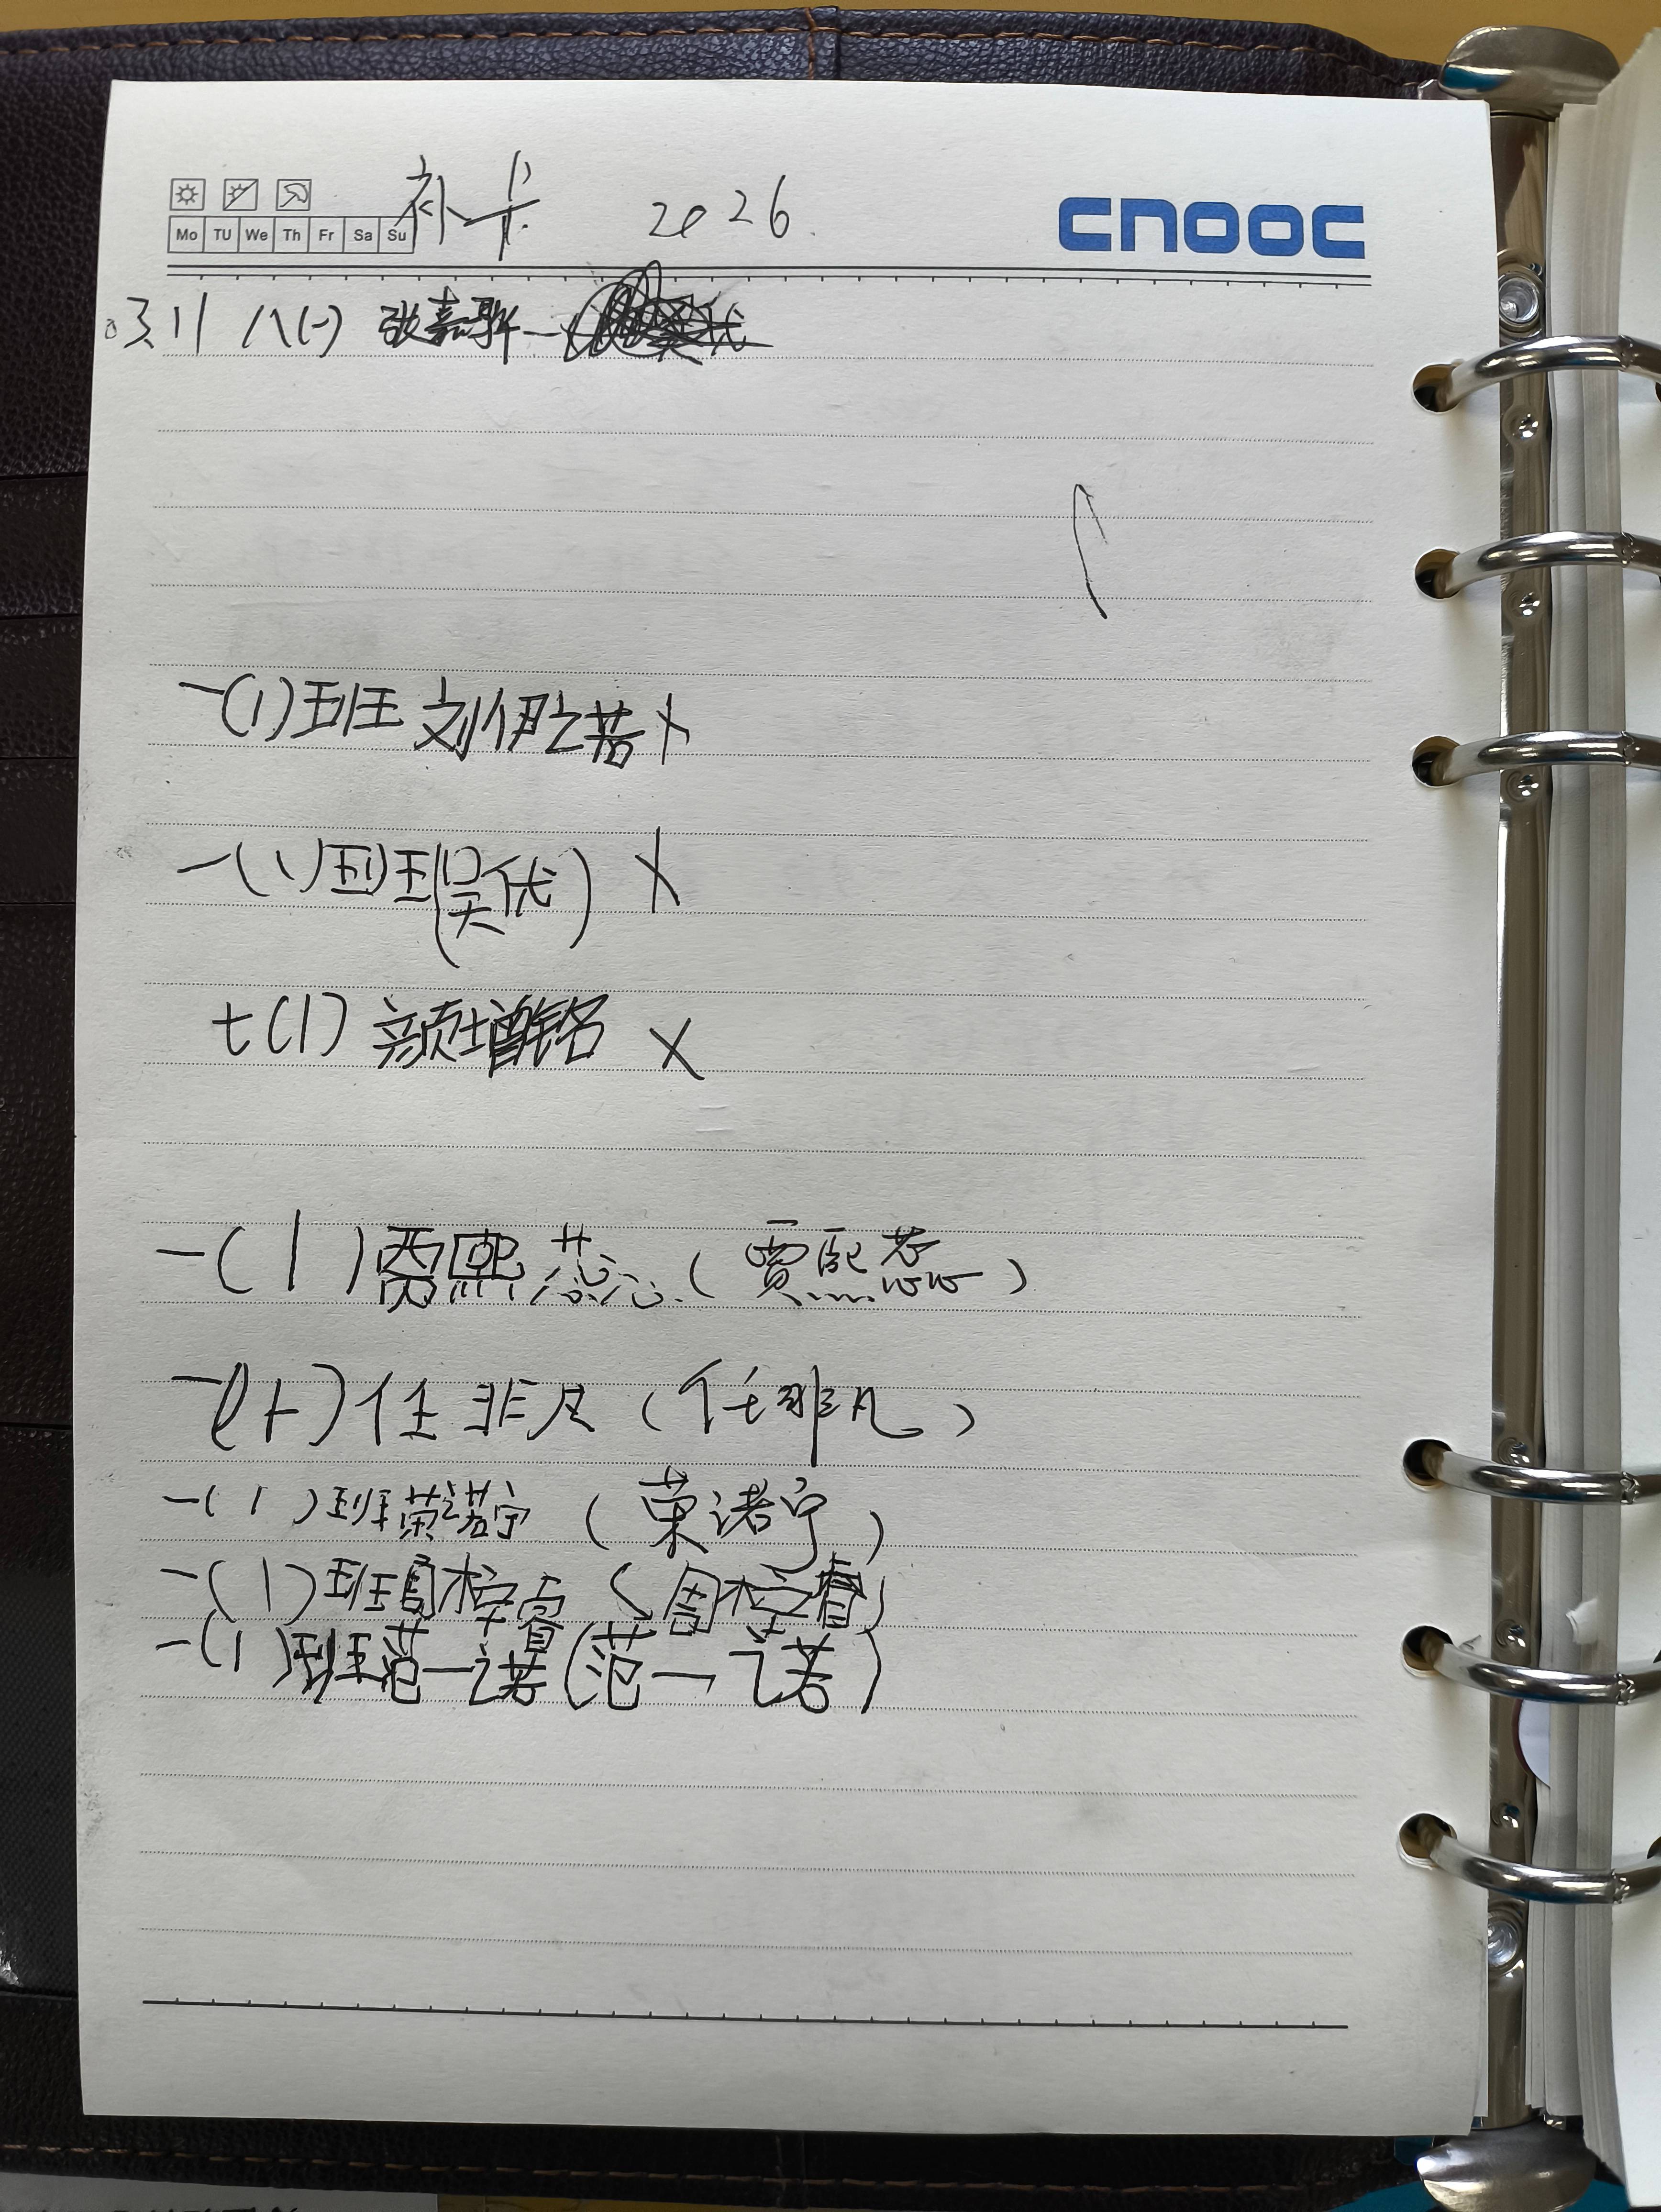 补卡 2026.
CNOOC
Mo TU We Th Fr Sa Su
03.11 八(一) 张嘉
一(1)班 刘伊之若 X
一(1)班(吴优) X
七(1) 颜增铭 X
一(1)贾熙蕊(贾熙蕊)
一(1)任非凡(任非凡)
一(1)班荣诺宁(荣诺宁)
一(1)班周梓睿(周梓睿)
一(1)班范一诺(范一诺)